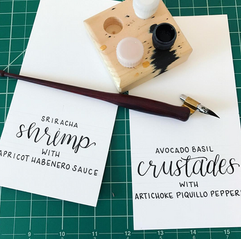 SRIRACHA
shrimp
WITH
APRICOT HABENERO SAUCE
AVOCADO BASIL
crustades
WITH
ARTICHOKE PIQUILLO PEPPER